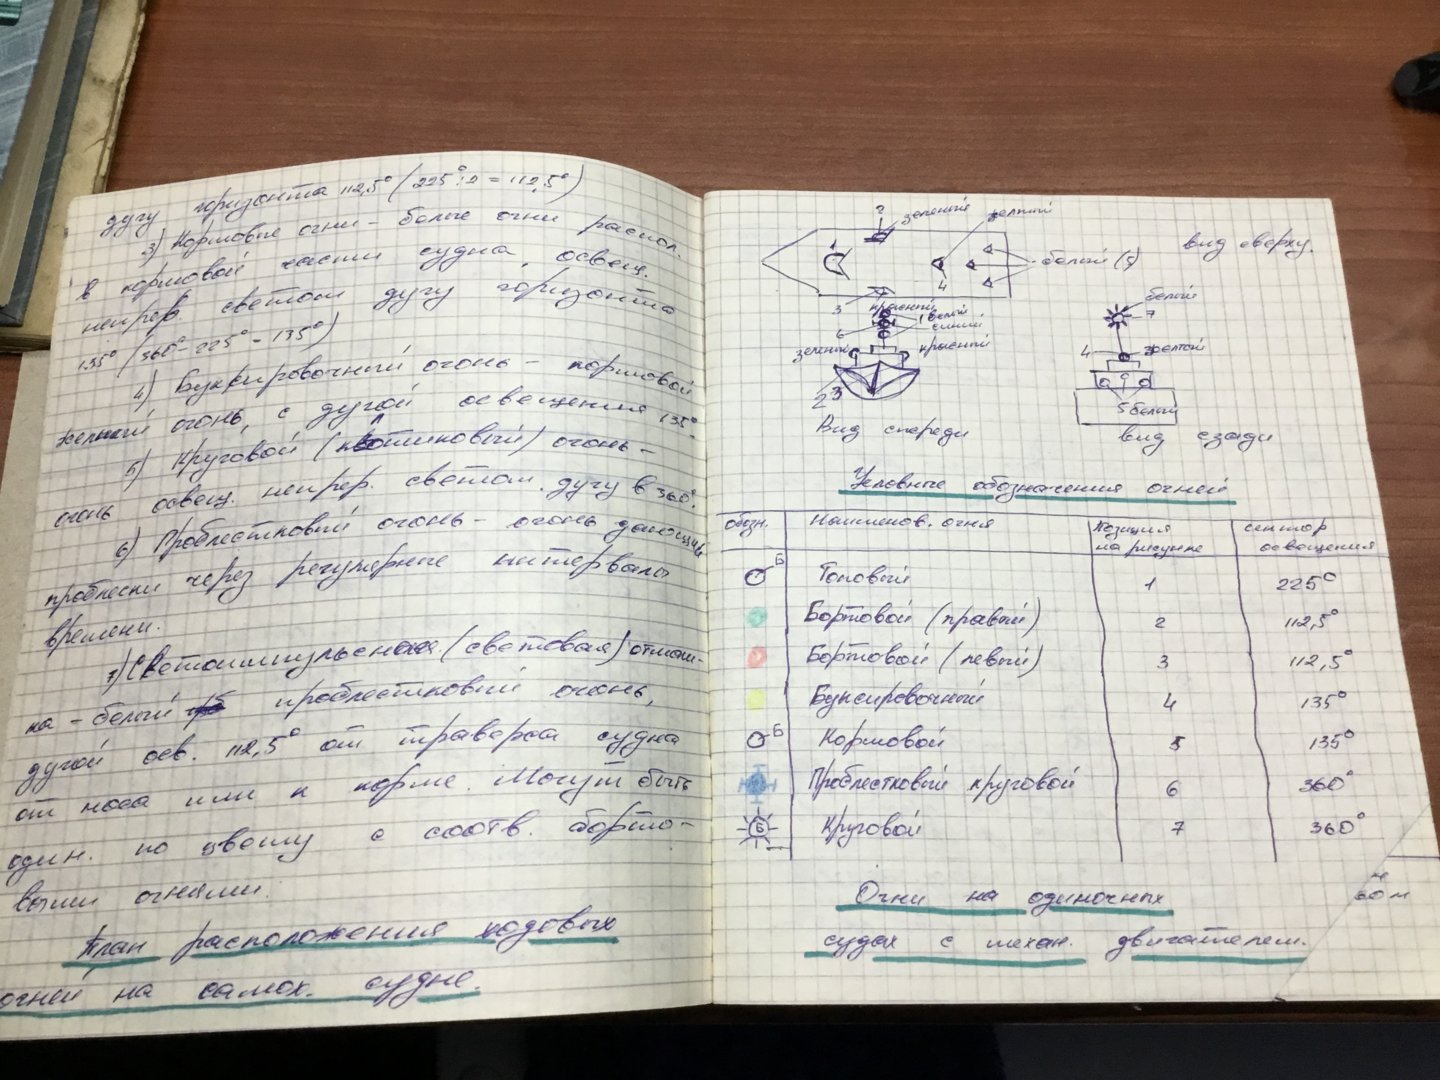 дугу горизонта 112,5° (225°:2 = 112,5°)
3) Кормовые огни – белые огни распол.
в кормовой части судна, освещ.
непрер. светом дугу горизонта
135° (360° – 225° = 135°)
4) Буксировочный огонь – кормовой
желтый огонь, с дугой освещения 135°.
5) Круговой (клотиковый) огонь –
огонь освещ. непрер. светом дугу в 360°.
6) Проблестковый огонь – огонь дающий
проблески через регулярные интервалы
времени.
7) Светоимпульсная (световая) отмаш-
ка – белый проблестковый огонь,
дугой осв. 112,5° от траверса судна
от носа или к корме. Могут быть
один. по цвету с соотв. борто-
выми огнями.
План расположения ходовых
огней на самох. судне.
2 зеленый желтый
вид сверху.
белый (5)
4
3
красный
1 белый
6 синий
зеленый красный
2 3
Вид спереди
белый
7
4 желтый
5 белый
вид сзади
Условные обозначения огней
обозн. Наименов. огня Позиция на рисунке сектор освещения
Б Топовый 1 225°
Бортовой (правый) 2 112,5°
Бортовой (левый) 3 112,5°
Буксировочный 4 135°
Б Кормовой 5 135°
Проблестковый круговой 6 360°
Б Круговой 7 360°
Огни на одиночных
судах с механ. двигателем.
60 м